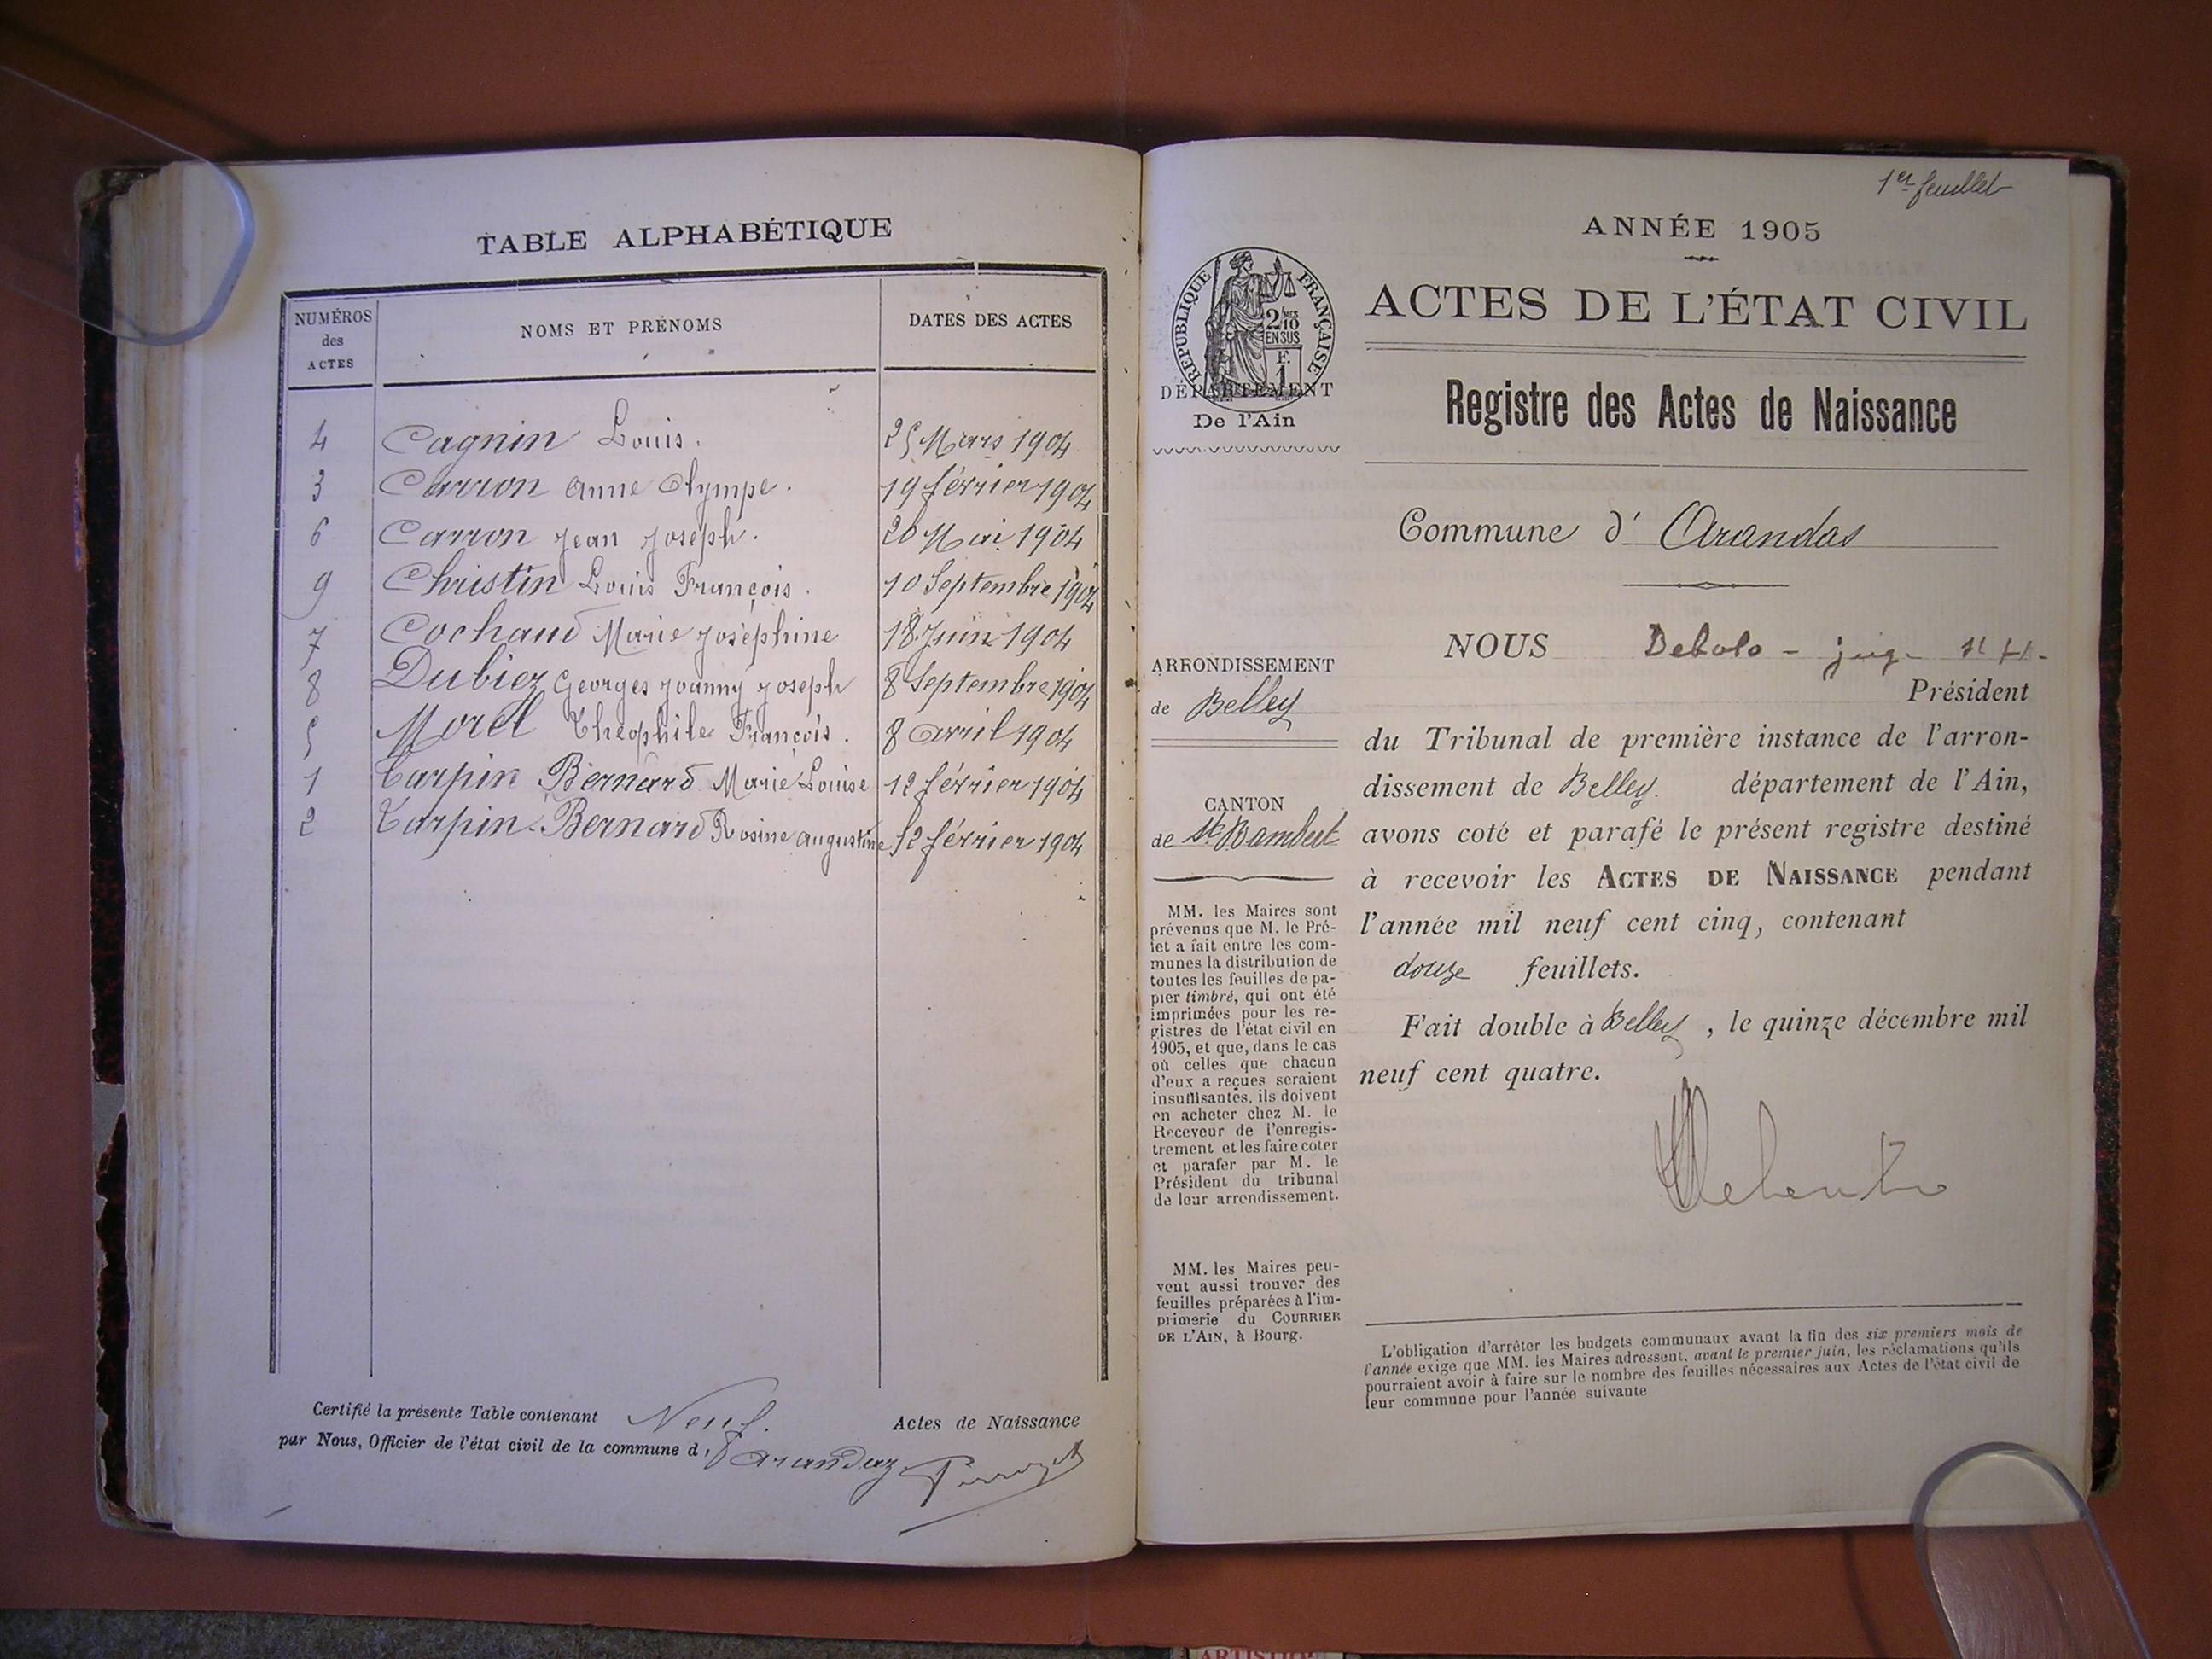 TABLE ALPHABÉTIQUE
NUMÉROS
des
ACTES
NOMS ET PRÉNOMS
DATES DES ACTES
4 Cagnin Louis. 25 Mars 1904
3 Carron Anne Olympe. 19 février 1904
6 Carron Jean Joseph. 20 Mai 1904
9 Christin Louis François. 10 Septembre 1904
7 Cochaud Marie Joséphine 18 Juin 1904
8 Dubiez Georges Joanny Joseph 8 Septembre 1904
5 Morel Théophile François. 8 avril 1904
1 Tarpin Bernard Marie Louise 12 février 1904
2 Tarpin-Bernard Rosine Augustine 12 février 1904
Certifié la présente Table contenant Neuf. Actes de Naissance
par Nous, Officier de l'état civil de la commune d'Arandaz
1er feuillet
ANNÉE 1905
ACTES DE L'ÉTAT CIVIL
RÉPUBLIQUE FRANÇAISE
2/10
EN SUS
F.
1
DÉPARTEMENT
De l'Ain
Registre des Actes de Naissance
Commune d' Arandas
ARRONDISSEMENT
de Belley
CANTON
de St Rambert
MM. les Maires sont
prévenus que M. le Pré-
fet a fait entre les com-
munes la distribution de
toutes les feuilles de pa-
pier timbré, qui ont été
imprimées pour les re-
gistres de l'état civil en
1905, et que, dans le cas
où celles que chacun
d'eux a reçues seraient
insuffisantes, ils doivent
en acheter chez M. le
Receveur de l'enregis-
trement et les faire coter
et parafer par M. le
Président du tribunal
de leur arrondissement.
MM. les Maires peu-
vent aussi trouver des
feuilles préparées à l'im-
primerie du COURRIER
DE L'AIN, à Bourg.
NOUS
Président
du Tribunal de première instance de l'arron-
dissement de Belley. département de l'Ain,
avons coté et parafé le présent registre destiné
à recevoir les ACTES DE NAISSANCE pendant
l'année mil neuf cent cinq, contenant
douze feuillets.
Fait double à Belley, le quinze décembre mil
neuf cent quatre.
L'obligation d'arrêter les budgets communaux avant la fin des six premiers mois de
l'année exige que MM. les Maires adressent, avant le premier juin, les réclamations qu'ils
pourraient avoir à faire sur le nombre des feuilles nécessaires aux Actes de l'état civil de
leur commune pour l'année suivante